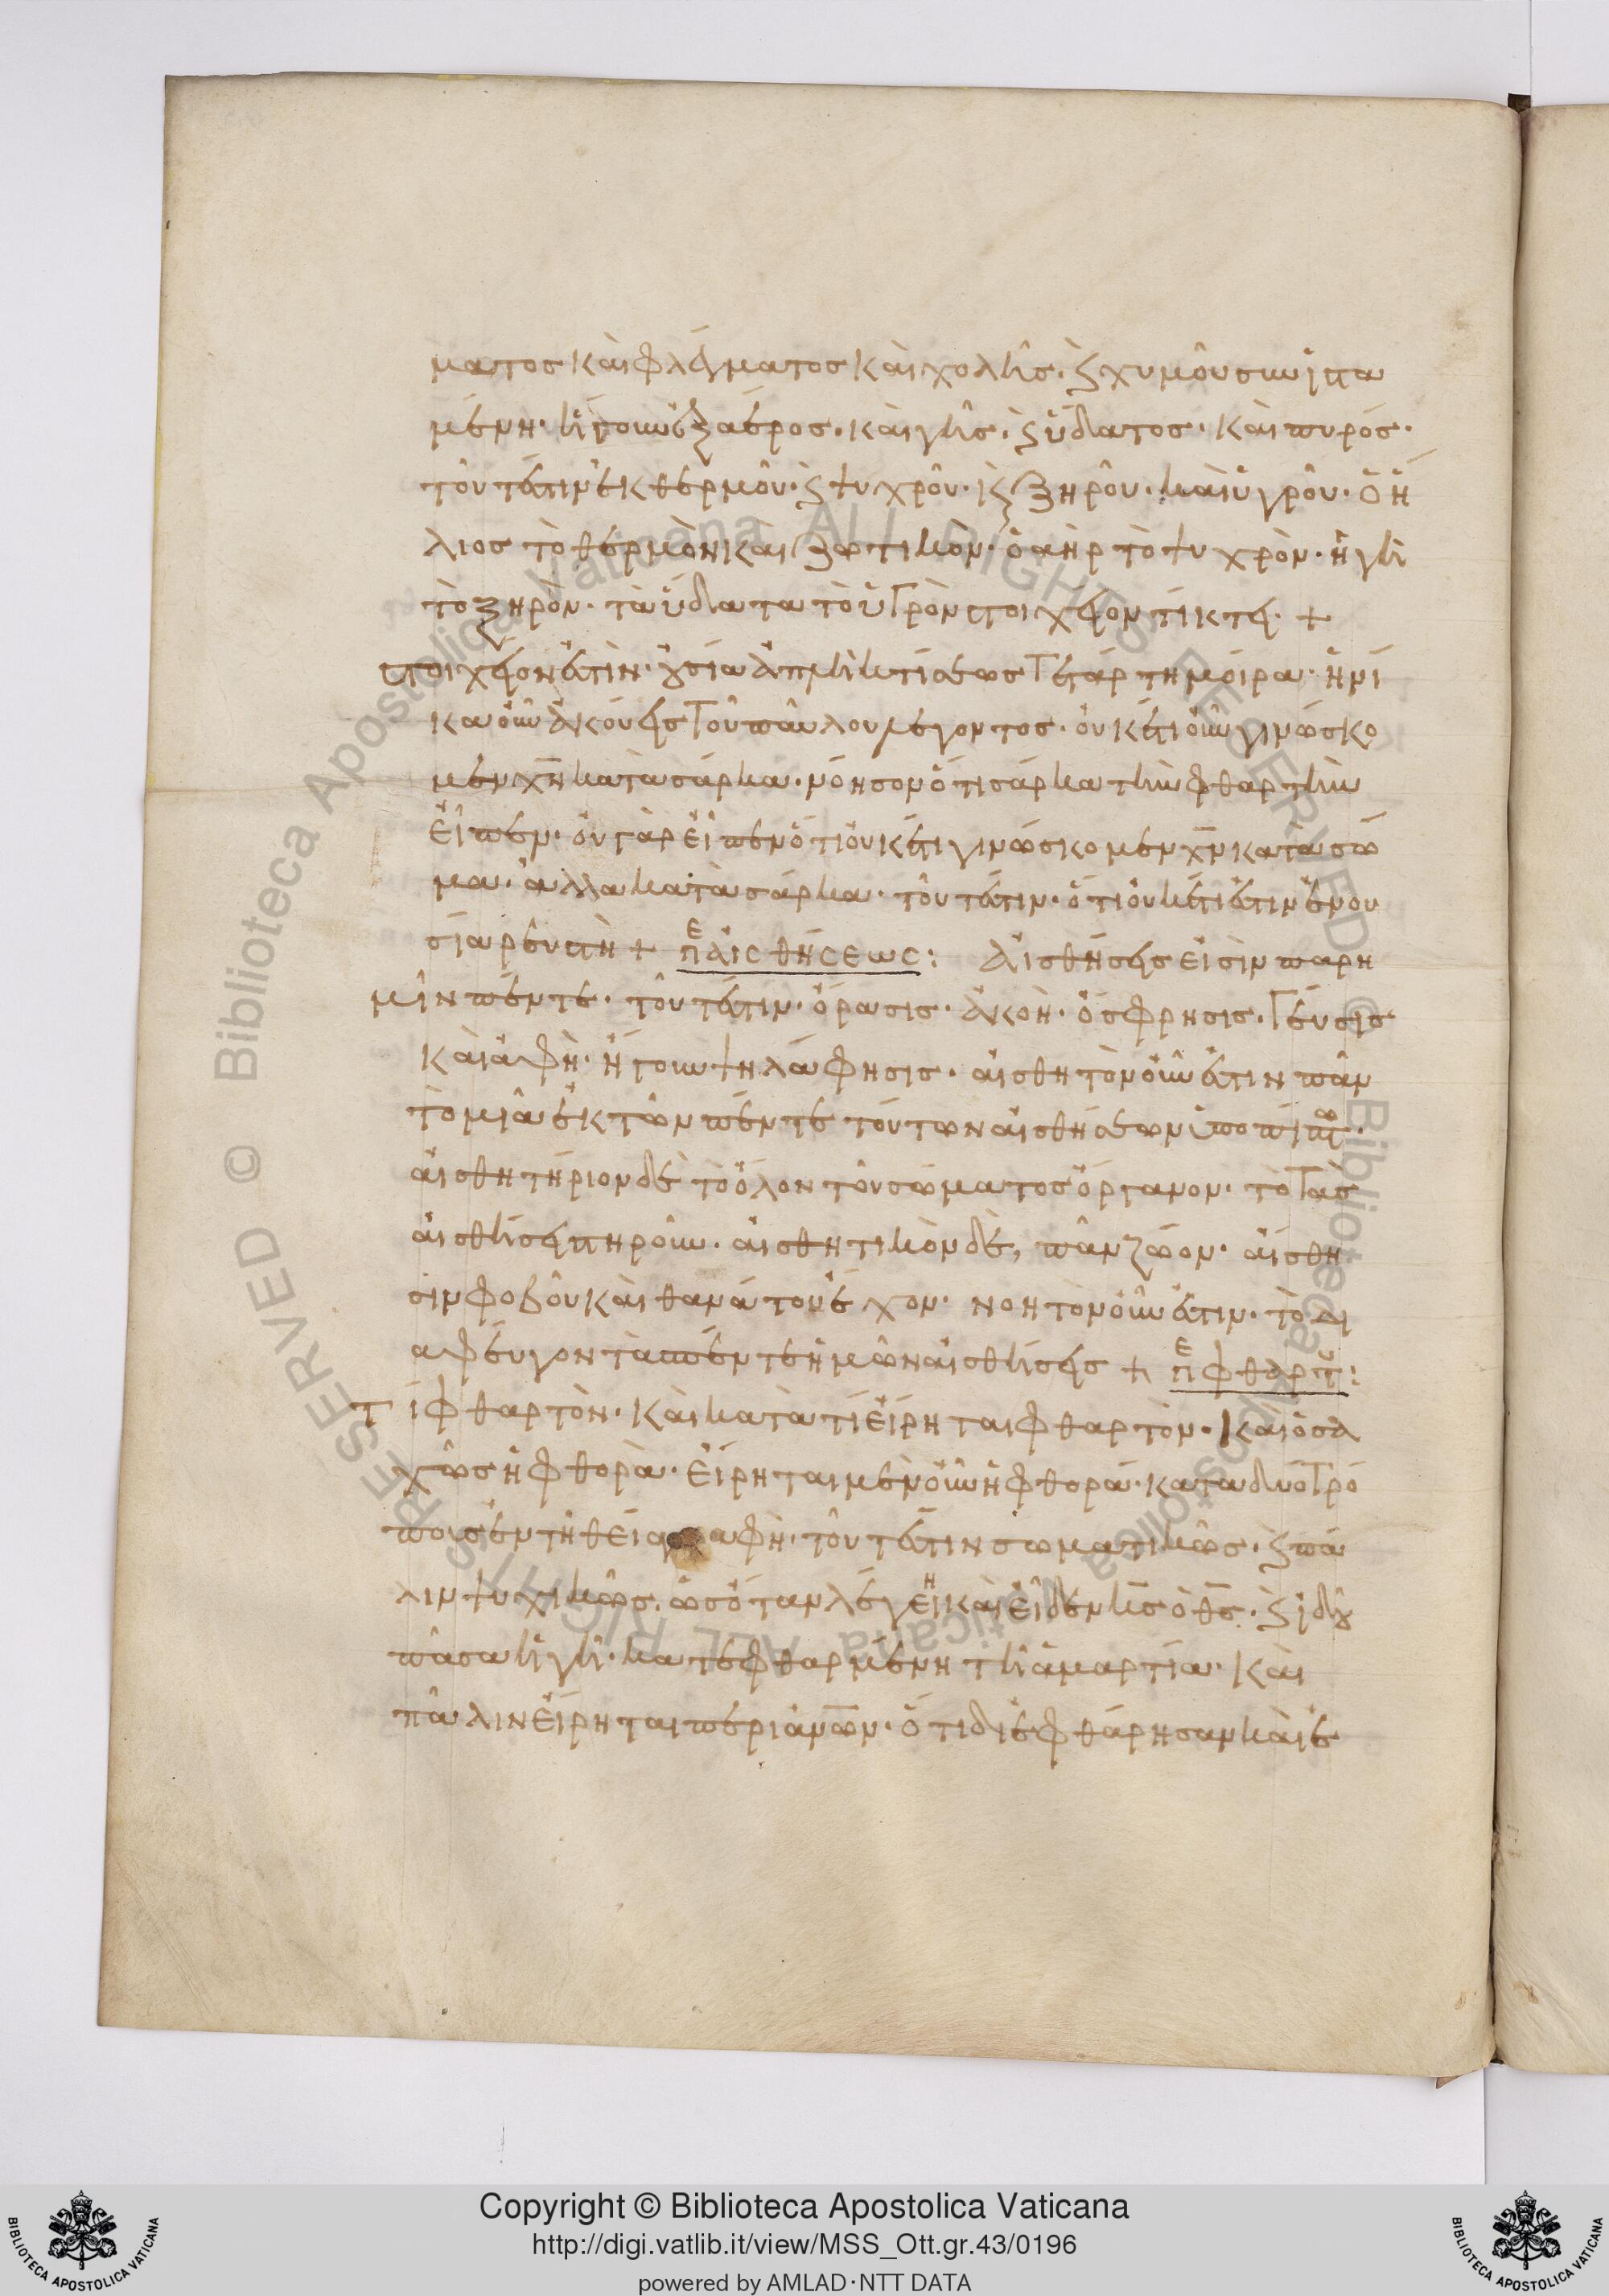 ματος καὶ φλέγματος καὶ χολῆς. ϗ χυμοῦ συνϊστα
μένη. ἤγουν ἐξ ἀέρος. καὶ γῆς. ϗ ὕδατος. καὶ πυρός.
τοῦτ' ἔστιν ἐκ θερμοῦ. ϗ ψυχροῦ. ϗ ξηροῦ. καὶ ὑγροῦ. ὁ ἥ
λιος τὸ θερμὸν καὶ ζωτικὸν. ὁ ἀὴρ τὸ ψυχρὸν. ἡ γῆ
τὸ ξηρὸν. τὰ ὕδατα τὸ ὑγρὸν στοιχεῖον τίκτει +
στοιχεῖον ἐστὶν.
κα οὖν ἀκούεις τοῦ παύλου λέγοντος. οὐκ ἔτι οὖν γινώσκο
μεν χν κατὰ σάρκα. νόησον ὅτι σάρκα τὴν φθαρτὴν
εἶπεν. οὐ γὰρ εἶπεν ὅτι οὐκ ἔτι γινώσκομεν χν κατὰ σῶ
μα. ἀλλὰ κατὰ σάρκα. τοῦτ' ἔστιν. ὅτι οὐκ ἔτι ἐστιν ἐν ου
σία ρευστὴ + πε αἰσθήσεως: Αἰσθήσεις εἰσὶν παρ η
μῖν πέντε. τοῦτ' ἔστιν. ὅρασις. ἀκοὴ. ὄσφρησις. γεύσις
καὶ ἁφὴ. ἤτοι ψηλάφησις. αἰσθητὸν οὖν ἐστὶν πᾶν
τὸ μιᾶ ἐκ τῶν πέντε τούτων αἰσθήσεων ὑποπίπτ.
αἰσθητήριον δὲ τὸ ὅλον τοῦ σώματος ὄργανον. τὸ τὰς
αἰσθήσεις πηροῦν. αἰσθητικὸν δὲ, πᾶν ζῶον. αἴσθη
σιν φόβου καὶ θανάτου ἔχον. νοητὸν οὖν ἐστιν. τὸ δι
αφεύγον τὰ πέντε ἡμῶν αἰσθήσεις + πε φθαρτ:
Τί φθαρτὸν. καὶ κατὰ τί εἴρηται φθαρτὸν. καὶ ὁσα
χῶς ἡ φθορὰ. εἴρηται μὲν οὖν ἡ φθορά. κατα δύο τρό
πους ἐν τῆ θεία αφὴ. τοῦτ' ἔστιν σωματικῶς. ϗ πά
λιν ψυχικῶς. ὡς ὅταν λέγει ἢ καὶ εἶδεν κς ὁ θς. ϗ ϊδου
πᾶσα ἡ γῆ. κατεφθαρμένη τῆ ἁμαρτία. καὶ
πάλιν εἴρηται περὶ ἀνων. ὅτι διεφθάρησαν καὶ ἐ
Copyright © Biblioteca Apostolica Vaticana
http://digi.vatlib.it/view/MSS_Ott.gr.43/0196
powered by AMLAD·NTT DATA